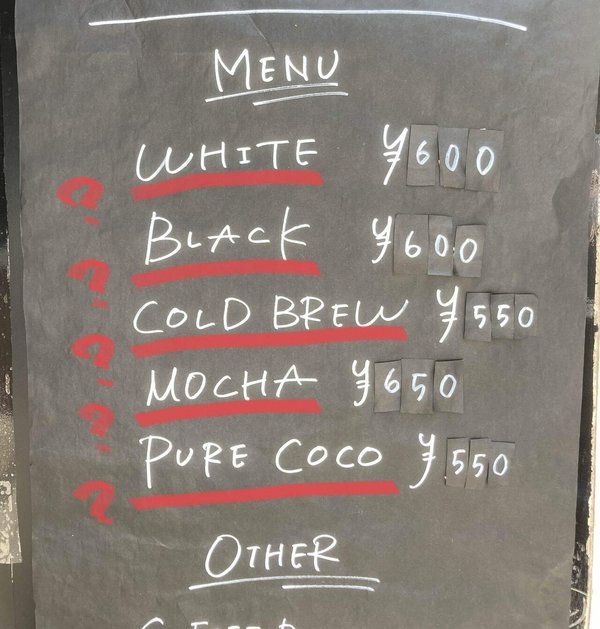 MENU
WHITE ¥600
BLACK ¥600
COLD BREW ¥550
MOCHA ¥650
PURE COCO ¥550
OTHER